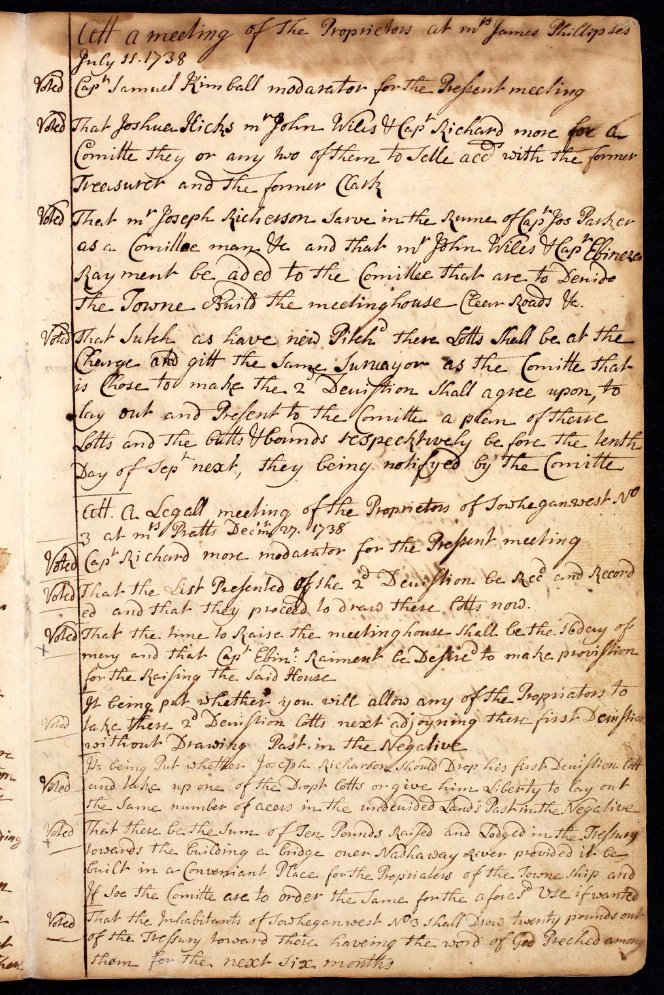 Att a meeting of the Proprietors at mrs James Phillipses
July 11. 1738
Voted Capt Samuel Kimball modarator for the Present meeting
Voted That Joshua Hicks mr John Wiles & Capt Richard more for a
Comitte they or any two of them to Setle accd with the former
Treasurer and the former Clark
Voted That mr Joseph Richerson Sarve in the Rume of Capt Jos Parker
as a Comittee man &c and that mr John Wiles & Capt Ebinezer
Rayment be aded to the Comittee that are to Devide
the Towne Build the meetinghouse Clear Roads &c.
Voted That Sutch as have new Pitchd there Lotts Shall be at the
Charge and gitt the Same Survayor as the Comitte that
is Chose to make the 2d Devistion Shall agree upon, to
lay out and Present to the Comitte a plan of theire
Lotts and the butts & bounds respecktively before the tenth
Day of Sept next, they being notifyed by the Comitte
Att. a Legall meeting of the Proprietors of Souheganwest No
3 at mrs Pratts Decmr 27. 1738
Voted Capt Richard more modarator for the Present meeting
Voted That the List Presented of the 2d Devistion be Recd and Record
ed and that they proceed to draw there Lotts now.
Voted That the time to Raise the meetinghouse Shall be the 16 day of
may and that Capt Ebinr Raiment be Desierd to make provistion
for the Raising the Said House
It being put whether you will allow any of the Propriators to
Voted take there 2d Devistion Lotts next adjoyning there first Devistion
without Drawing Past in the Negative
It being Put whether Joseph Richardson Should Drop his first Devistion Lott
Voted and take up one of the Dropt Lotts or give him Liberty to lay out
the Same number of acers in the undevided Lands Past in the Negative
Voted That there be the Sum of Ten Pounds Raised and Lodged in the Treasury
towards the building a bridge over Nashaway River provided it be
built in a Conveniant Place for the Propriaters of the Towne Ship and
If Soe the Comitte are to order the Same for the aforesd Use if wanted
Voted That the Inhabitants of Souheganwest No 3 Shall Draw twenty pounds out
of the Treasury toward there haveing the word of God Preched among
them for the next Six months